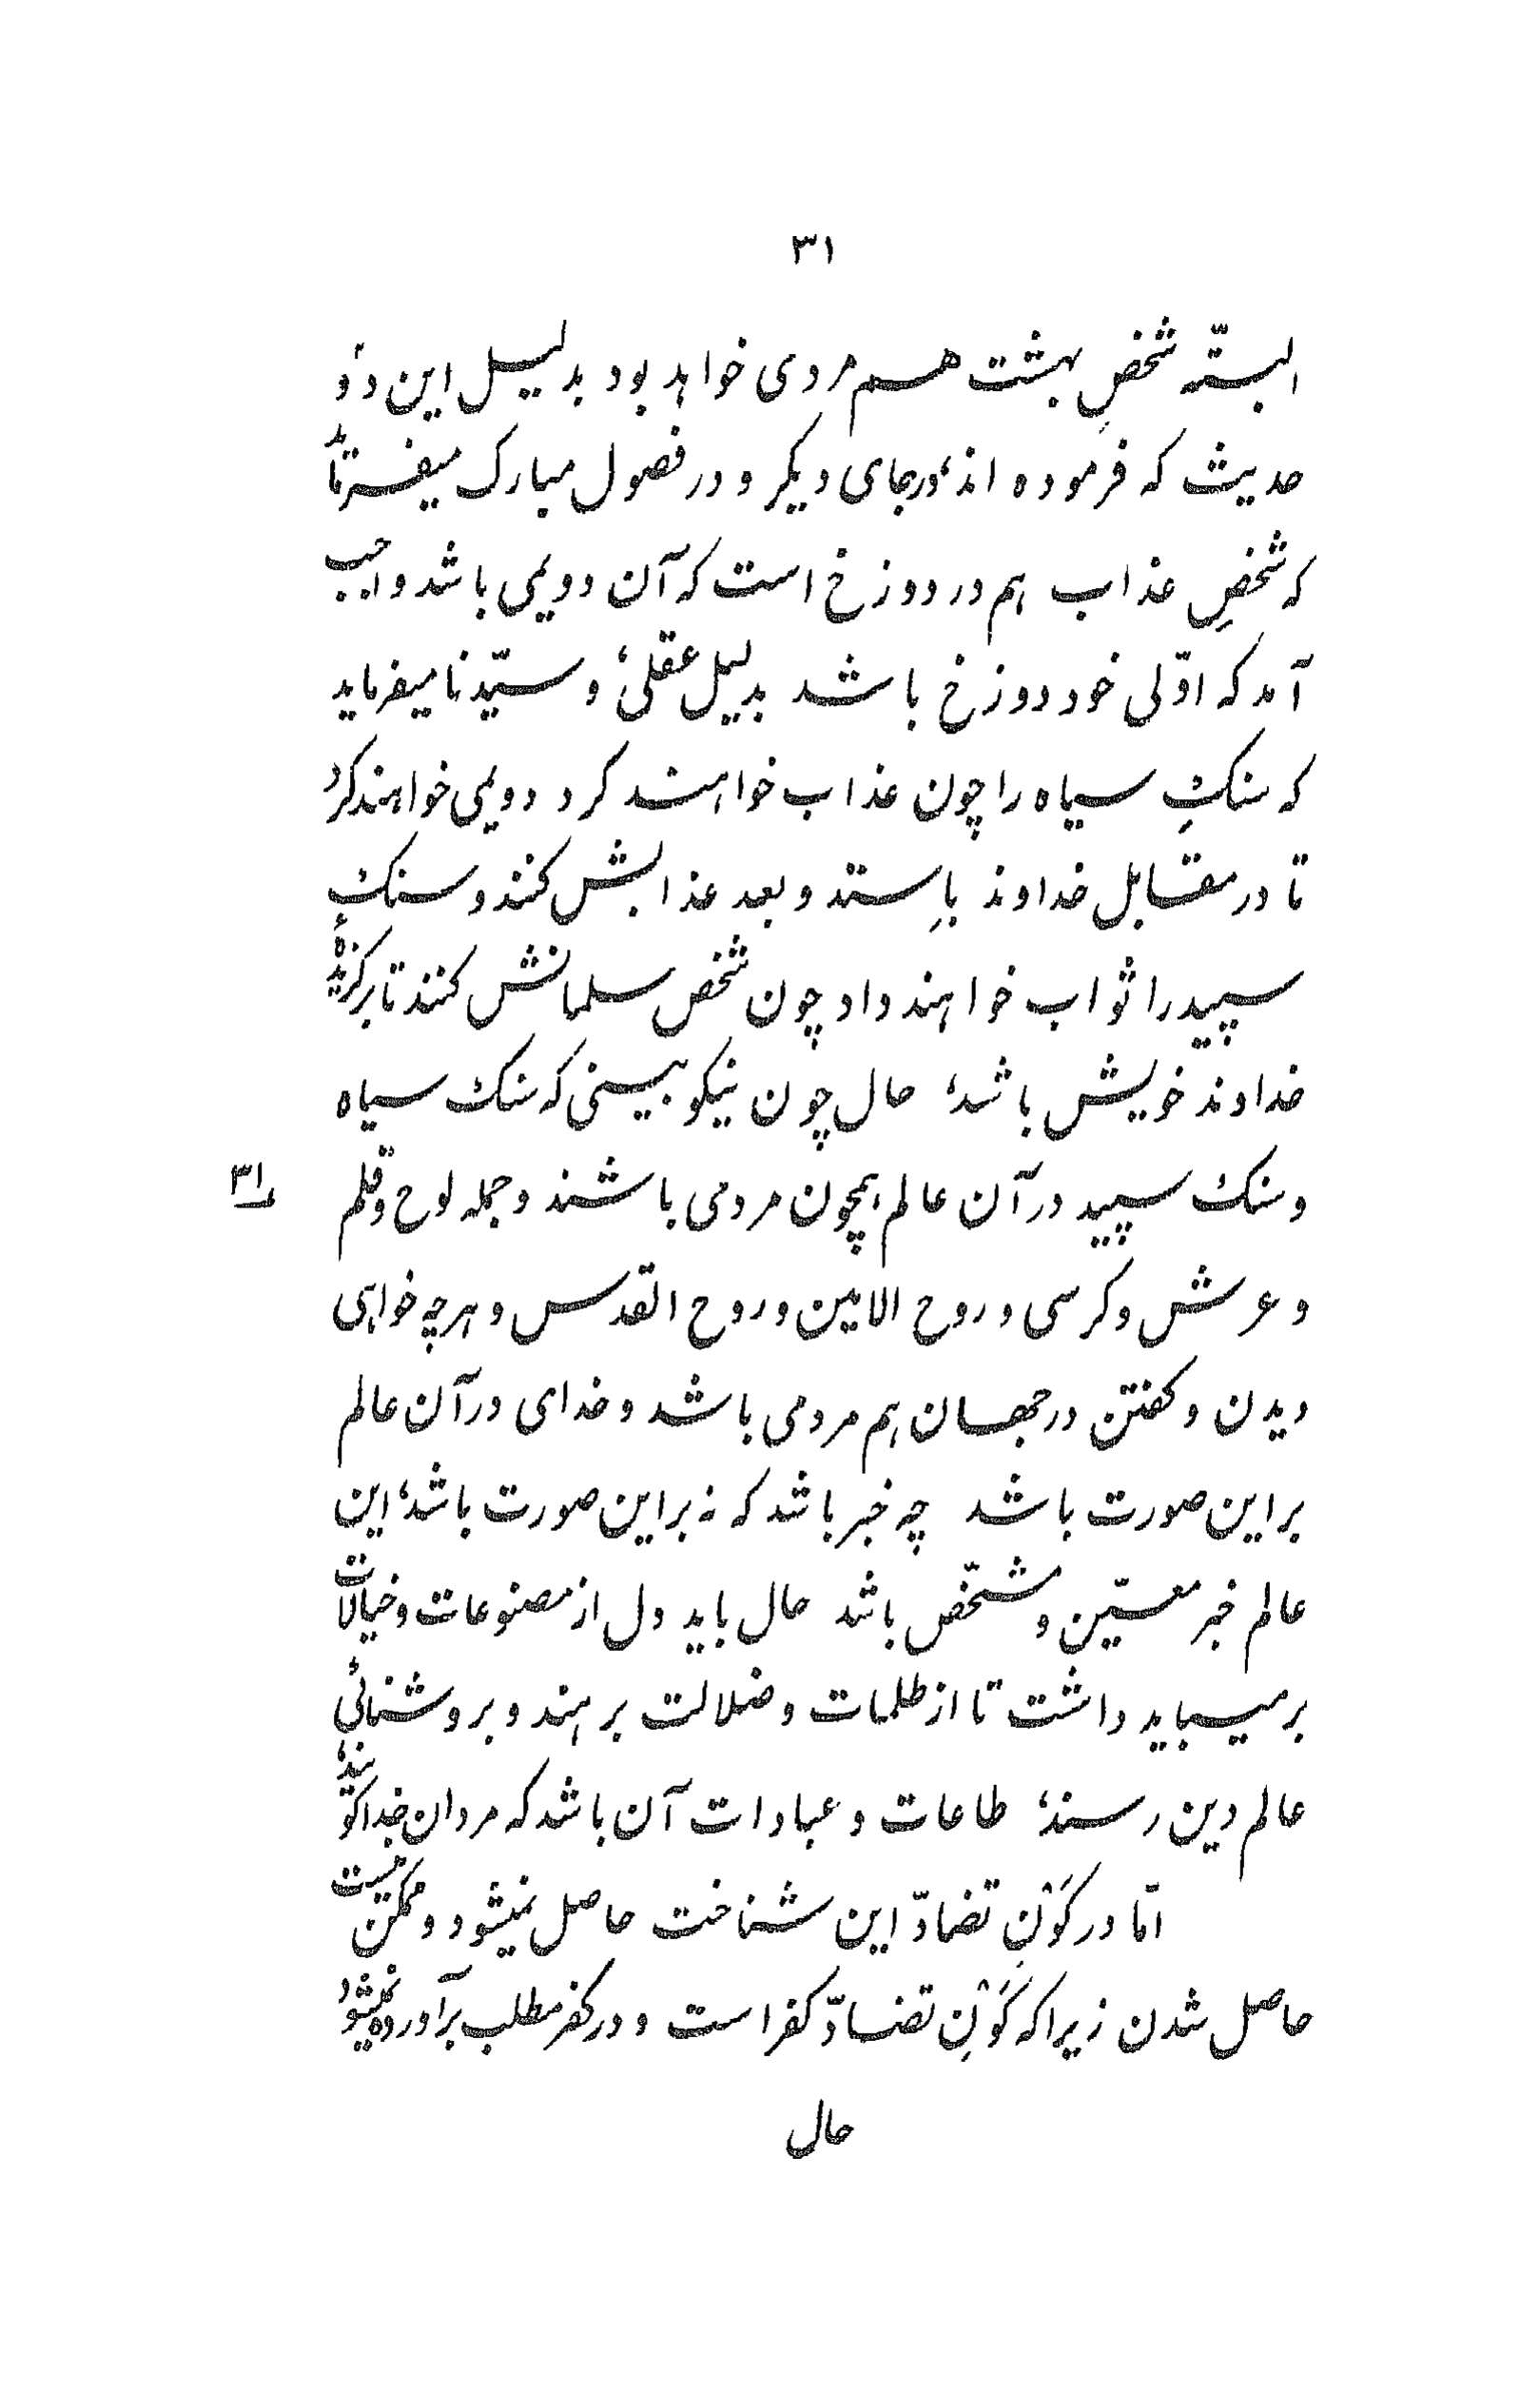 ۳۱
البتّه شخصِ بهشت هم مردی خواهد بود بدلیل این دو
حدیث که فرموده اند، در جای دیکر و در فصول مبارک میفرماید
که شخصِ عذاب هم در دوزخ است که آن دویمی باشد واجب
آمد که اوّلی خود دوزخ باشد بدلیل عقلی، و سیّدنا میفرماید
که سنکِ سیاه را چون عذاب خواهند کرد دویمی خواهند کرد
تا در مقابل خداوند باِستد و بعد عذابش کنند و سنک
سپید را ثواب خواهند داد چون شخص سلمانش کنند تا برکزیدهٔ
خداوند خویش باشد، حال چون نیکو ببینی که سنک سیاه
و سنک سپید در آن عالم، همچون مردمی باشند و جمله لوح و قلم
۳۱ر
و عرش و کرسی و روح الامین و روح القدس و هر چه خواهی
دیدن و کفتن در جهان هم مردمی باشد و خدای در آن عالم
بر این صورت باشد چه خبر باشد که نه بر این صورت باشد، این
عالم خبر معیّن و مشخّص باشد حال باید دل از مصنوعات و خیالات
بر میباید داشت تا از ظلمات و ضلالت برهند و بروشنائی
عالم دین رسند، طاعات و عبادات آن باشد که مردان خدا کویند،
امّا در کَوْنِ تضادّ این شناخت حاصل نمیشود و ممکن نیست
حاصل شدن زیرا که کَوْنِ تضادّ کفر است و در کفر مطلب برآورده نمیشود
حال